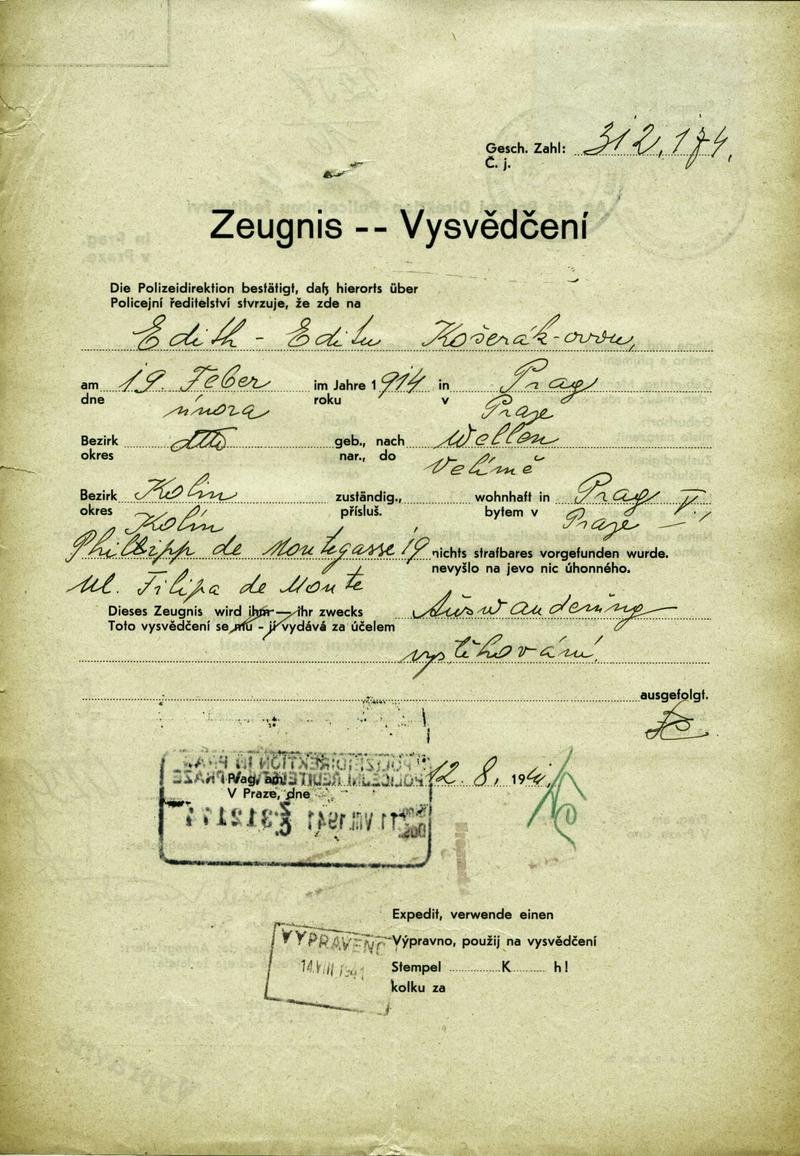 Gesch. Zahl: 312.174.
Č. j.
Zeugnis -- Vysvědčení
Die Polizeidirektion bestätigt, daß hierorts über
Policejní ředitelství stvrzuje, že zde na
Edith - Editu Košerák-ovou,
am 19. Feber im Jahre 1914 in Prag
dne února roku v Praze
Bezirk dtto geb., nach Wellen
okres nar., do Velimě
Bezirk Kolin zuständig., wohnhaft in Prag V.,
okres Kolín přísluš. bytem v Praze
Phillipp de Montegasse 19 nichts strafbares vorgefunden wurde.
ul. Filipa de Monte nevyšlo na jevo nic úhonného.
Dieses Zeugnis wird ihm — ihr zwecks Auswanderung
Toto vysvědčení se mu - jí vydává za účelem
vystěhování.
ausgefolgt.
Prag, am 12. 8. 1941.
V Praze, dne
11 VIII 1941
Expedit, verwende einen
VYPRAVENO Výpravno, použij na vysvědčení
14. VIII 1941 Stempel K h!
kolku za